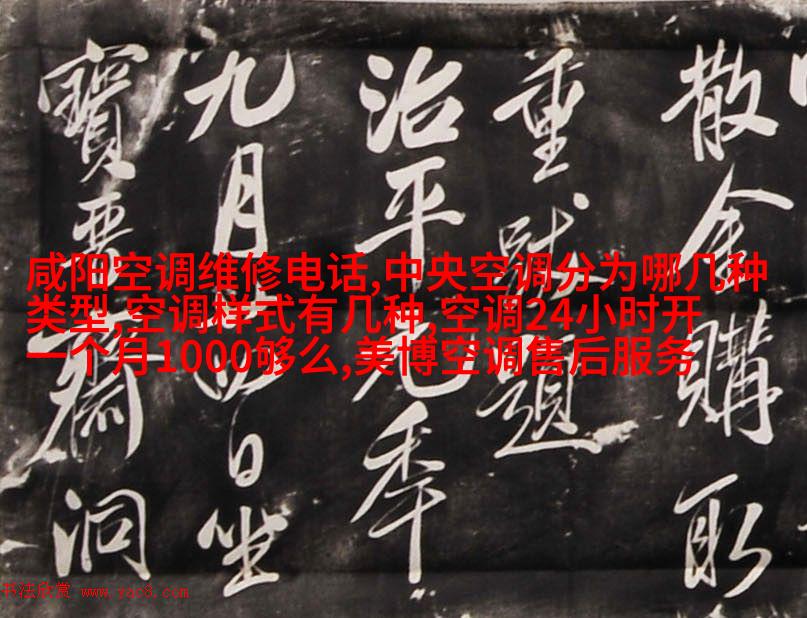 散金購取
重跋題
治平元季
九月廿四日坐
寶晉齋洞
咸阳空调维修电话,中央空调分为哪几种
类型,空调样式有几种,空调24小时开
一个月1000够么,美博空调售后服务
书法欣赏 www.yac8.com